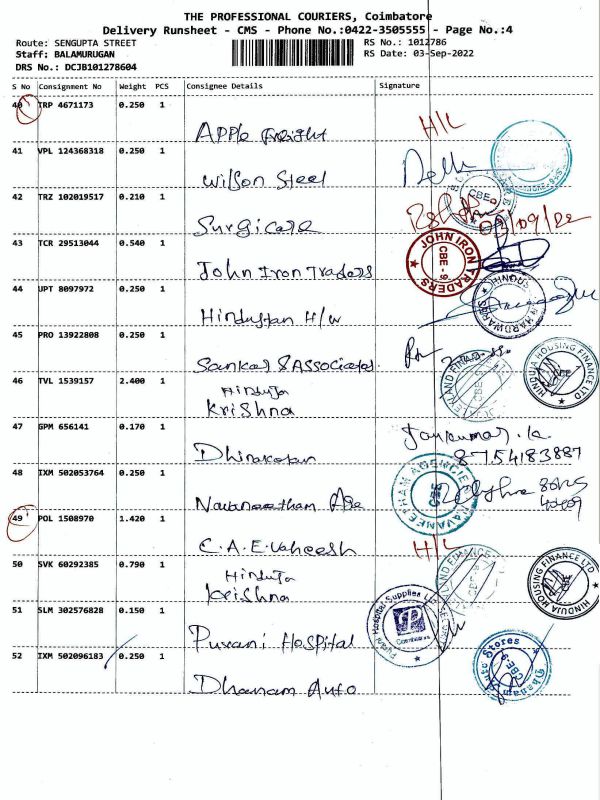 THE PROFESSIONAL COURIERS, Coimbatore
Delivery Runsheet - CMS - Phone No.:0422-3505555 - Page No.:4
Route: SENGUPTA STREET
RS No.: 1012786
Staff: BALAMURUGAN
RS Date: 03-Sep-2022
DRS No.: DCJB101278604
S No Consignment No Weight PCS Consignee Details Signature
40 TRP 4671173 0.250 1
Apple Freight H/L
41 VPL 124368318 0.250 1
Wilson Steel
42 TRZ 102019517 0.210 1
CBE
Surgicare
43 TCR 29513044 0.540 1
John Iron Traders
JOHN IRON TRADERS CBE - 9
44 UPT 8097972 0.250 1
Hindustan H/W
45 PRO 13922808 0.250 1
Sankar & Associates
46 TVL 1539157 2.400 1
Hinduja
Krishna
HINDUJA HOUSING FINANCE LTD CBE
47 GPM 656141 0.170 1
Jayakumar.k
8754183887
48 IXM 502053764 0.250 1
NAVANEETHAM AGENCIES CBE
49 POL 1508970 1.420 1
C.A.E.Vaheesh H/L
50 SVK 60292385 0.790 1
Hinduja
Krishna
HINDUJA HOUSING FINANCE LTD CBE
51 SLM 302576828 0.150 1
Purani Hospital
Purani Hospital Supplies Coimbatore
52 IXM 502096183 0.250 1
Dhanam Auto
Dhanam Auto Stores